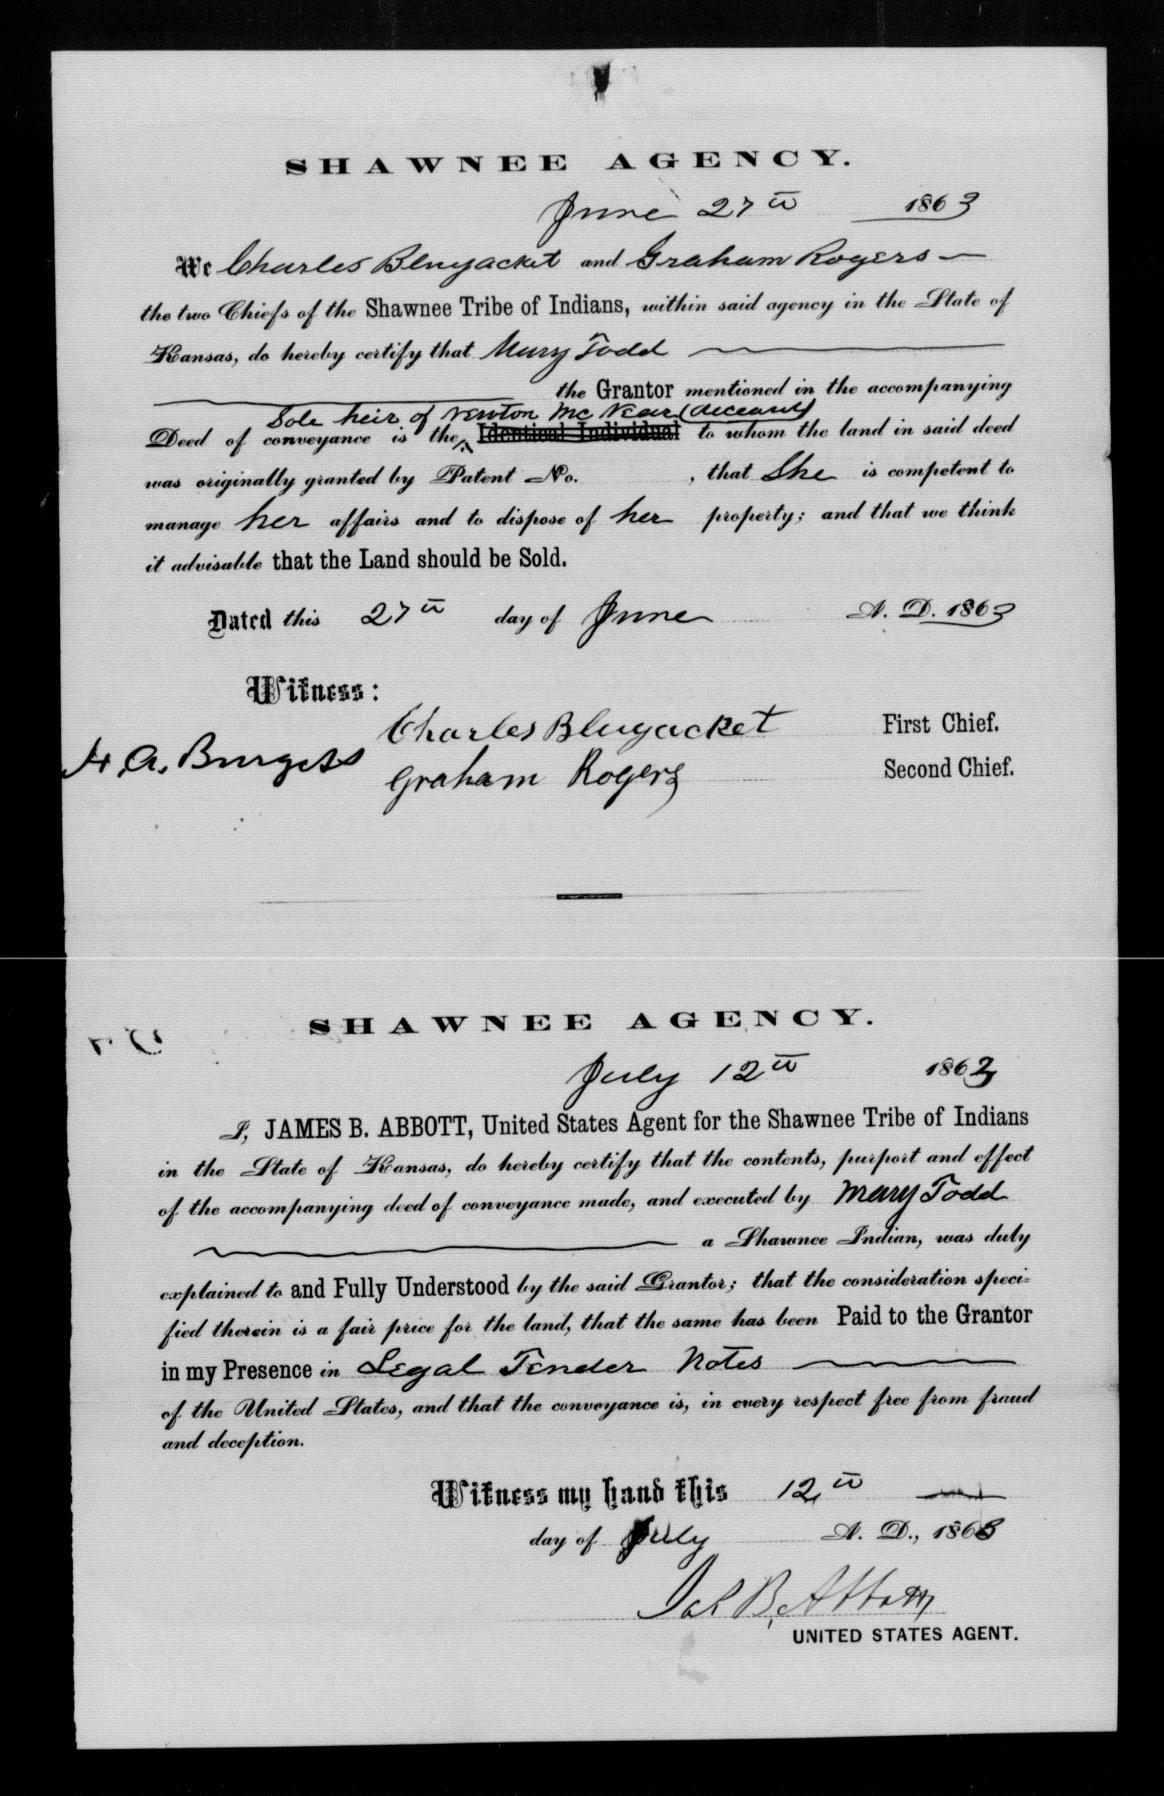 SHAWNEE AGENCY.
June 27th 1863
We Charles Bluejacket and Graham Rogers
the two Chiefs of the Shawnee Tribe of Indians, within said agency in the State of
Kansas, do hereby certify that Mary Todd
the Grantor mentioned in the accompanying
Sole heir of Newton McNear (deceased)
Deed of conveyance is the Identical Individual to whom the land in said deed
was originally granted by Patent No. , that She is competent to
manage her affairs and to dispose of her property; and that we think
it advisable that the Land should be Sold.
Dated this 27th day of June A. D. 1863
Witness:
Charles Bluejacket First Chief.
H. A. Burgess
Graham Rogers Second Chief.
SHAWNEE AGENCY.
July 12th 1863
I, JAMES B. ABBOTT, United States Agent for the Shawnee Tribe of Indians
in the State of Kansas, do hereby certify that the contents, purport and effect
of the accompanying deed of conveyance made, and executed by Mary Todd
a Shawnee Indian, was duly
explained to and Fully Understood by the said Grantor; that the consideration speci-
fied therein is a fair price for the land, that the same has been Paid to the Grantor
in my Presence in Legal Tender Notes
of the United States, and that the conveyance is, in every respect free from fraud
and deception.
Witness my hand this 12th
day of July A. D., 1863
Jas B. Abbott
UNITED STATES AGENT.